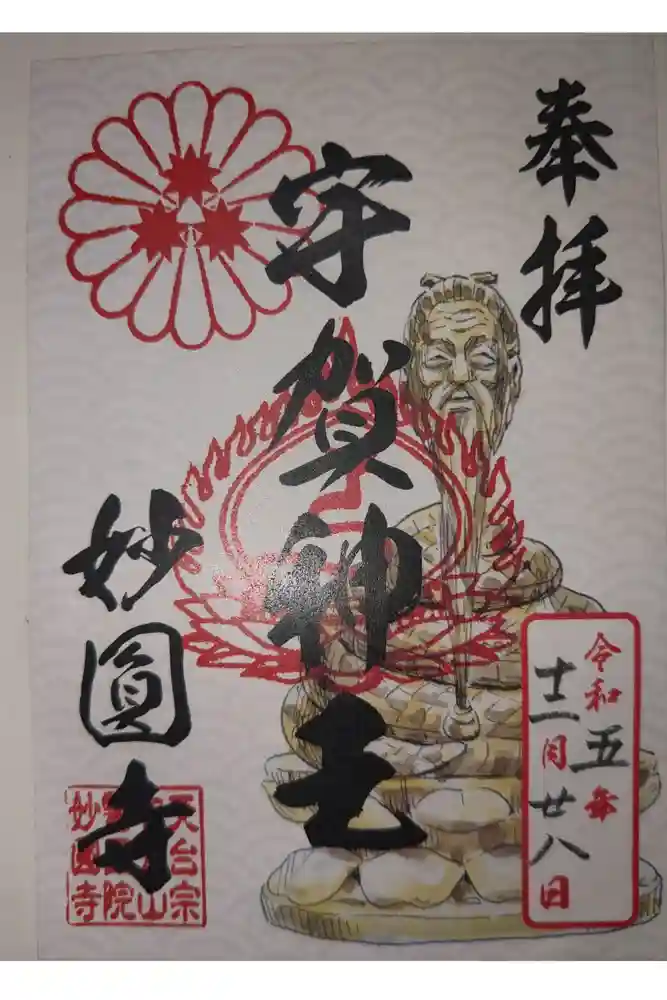 奉拝
宇賀神王
妙圓寺
令和五年
十二月廿八日
天台宗
山
院
妙圓寺